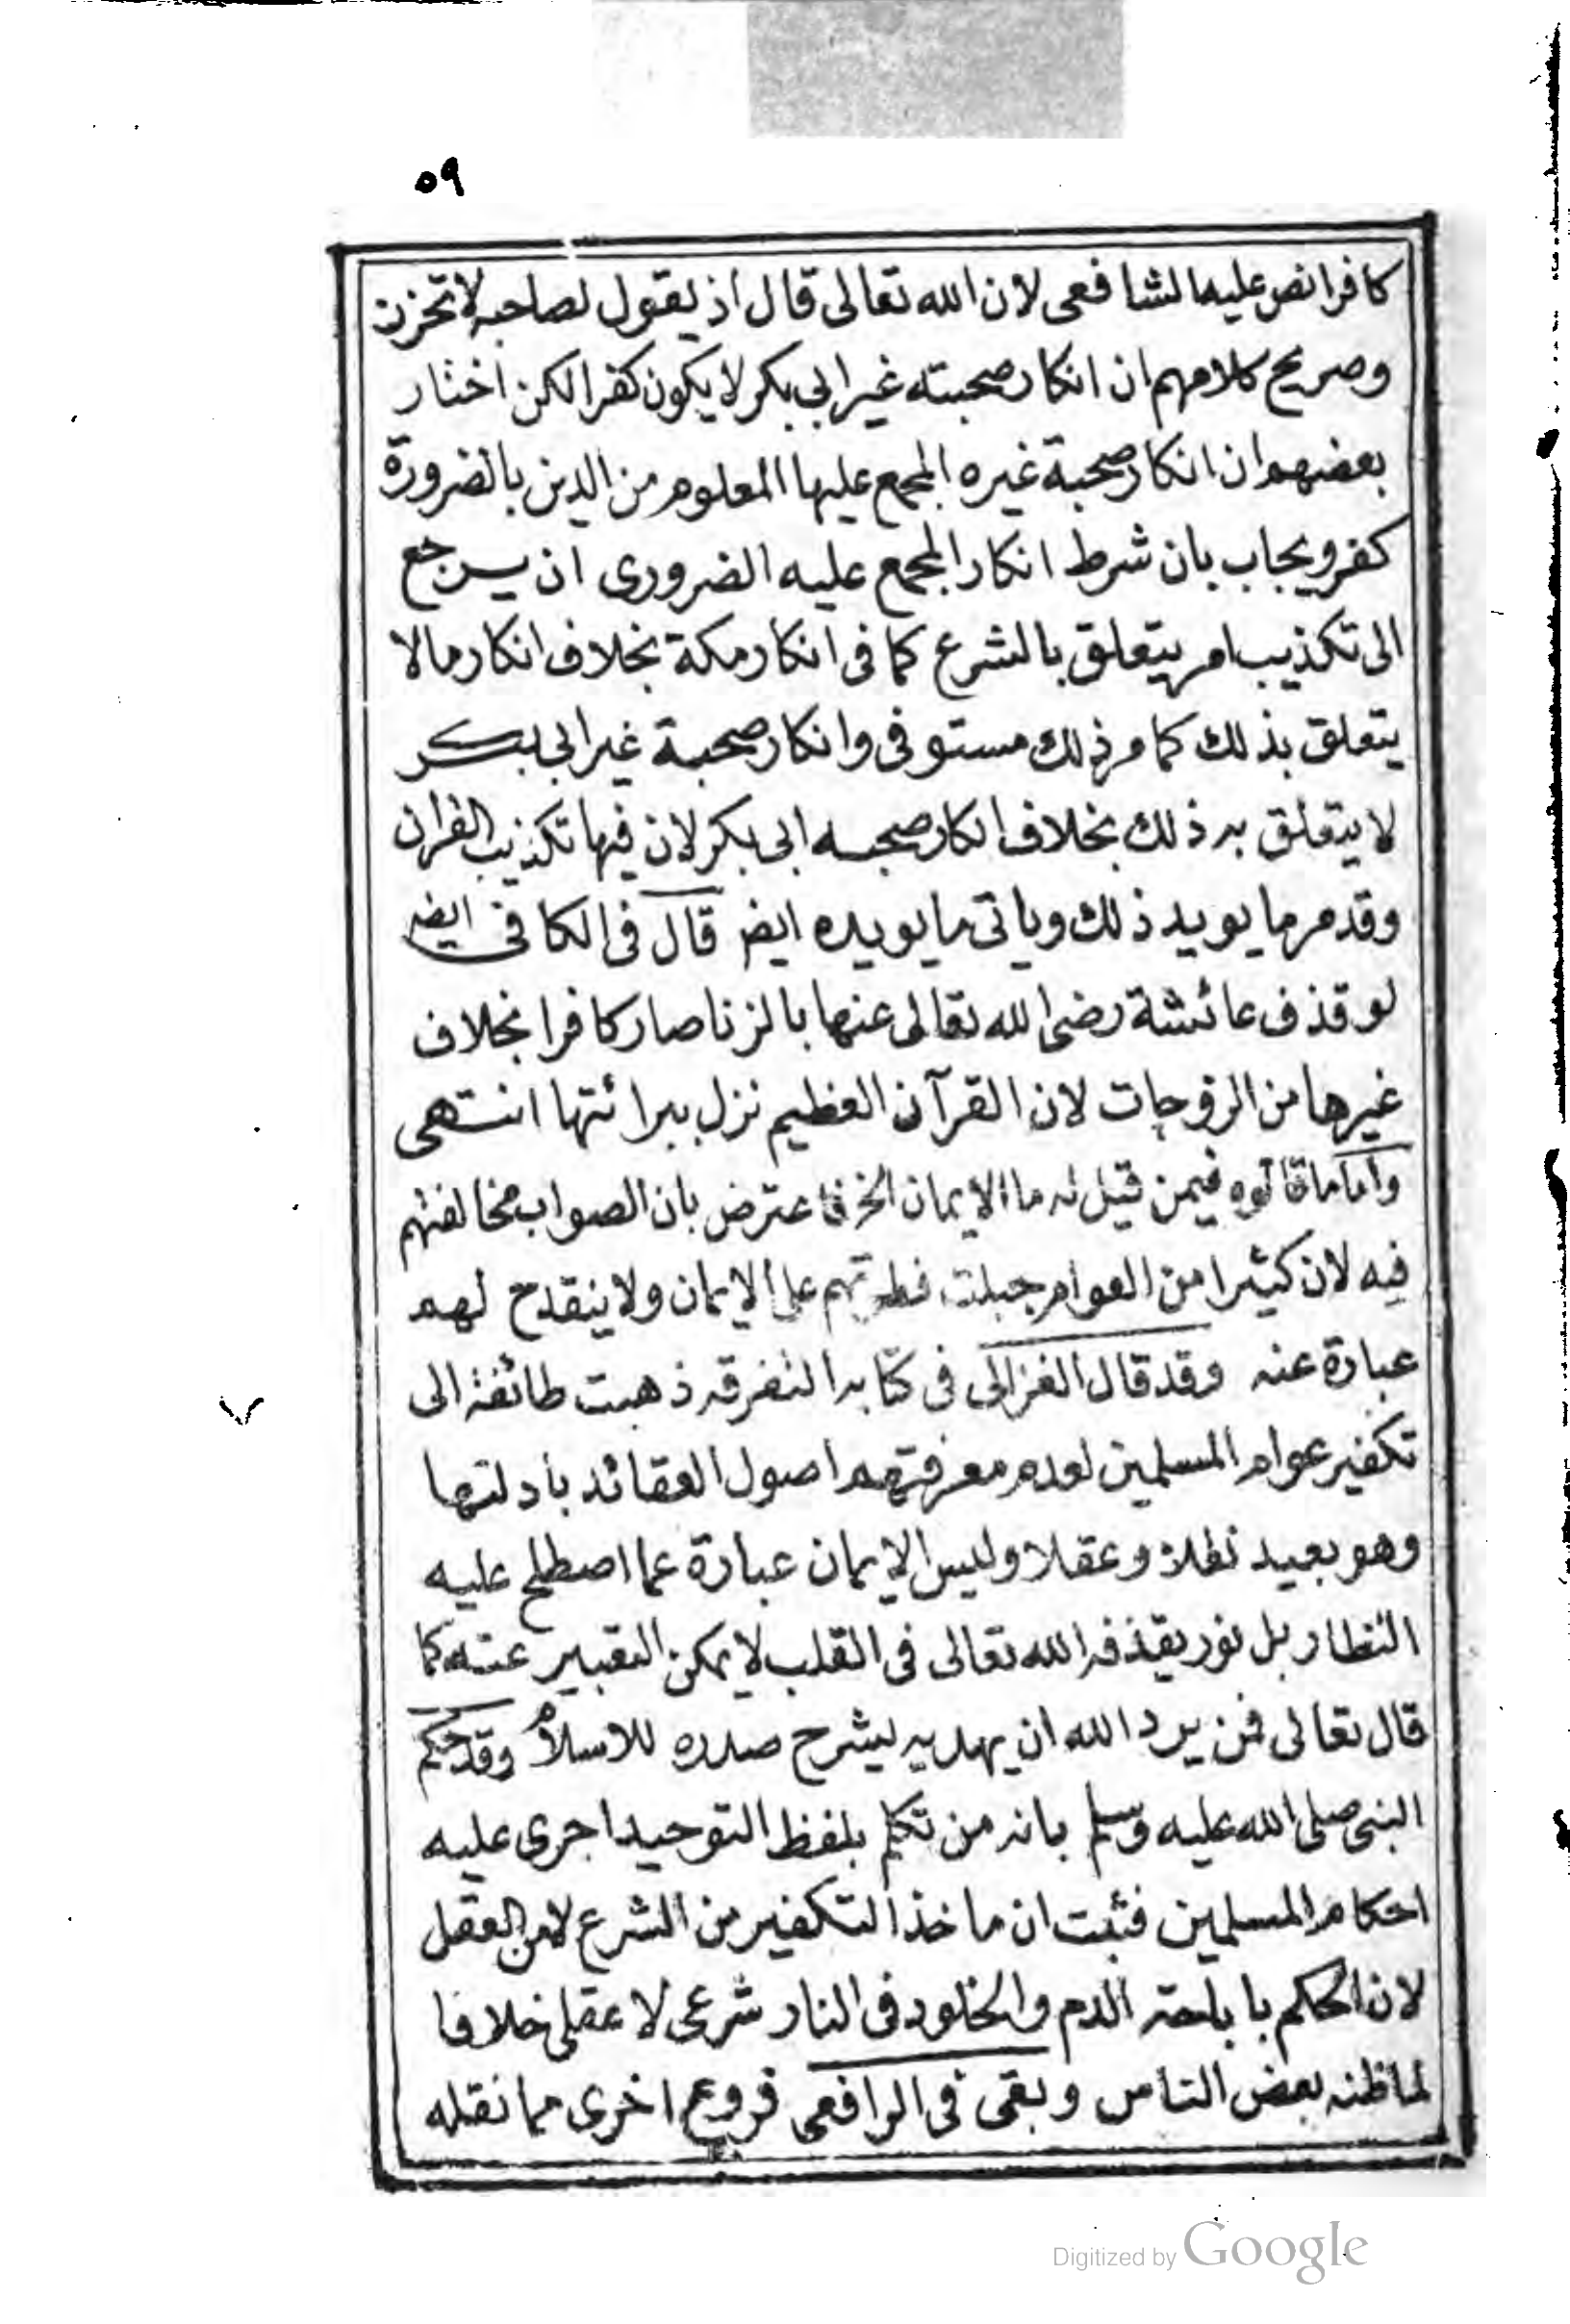 ٥٩
كافرا نص عليه الشافعى لان الله تعالى قال اذ يقول لصاحبه لا تحزن
وصريح كلامهم ان انكار صحبته غير ابى بكر لا يكون كفرا لكن اختار
بعضهم ان انكار صحبة غيره المجمع عليها المعلوم من الدين بالضرورة
كفر ويجاب بان شرط انكار المجمع عليه الضرورى ان يرجع
الى تكذيب امر يتعلق بالشرع كما فى انكار مكة بخلاف انكار ما لا
يتعلق بذلك كما مر ذلك مستوفى وانكار صحبة غير ابى بكر
لا يتعلق به ذلك بخلاف انكار صحبه ابى بكر لان فيها تكذيب القران
وقد مر ما يويد ذلك وياتى ما يويده ايض قال فى الكافى ايض
لو قذف عائشة رضى الله تعالى عنها بالزنا صار كافرا بخلاف
غيرها من الزوجات لان القرآن العظيم نزل ببرائتها انتهى
واما ما قالوه فيمن قيل له ما الايمان الخ فاعترض بان الصواب مخالفتهم
فيه لان كثيرا من العوام جبلت فطرتهم على الايمان ولا ينقدح لهم
عبارة عنه وقد قال الغزالى فى كتابه التفرقه ذهبت طائفة الى
تكفير عوام المسلمين لعدم معرفتهم اصول العقائد بادلتها
وهو بعيد نقلا وعقلا وليس الايمان عبارة عما اصطلح عليه
النظار بل نور يقذفه الله تعالى فى القلب لا يمكن التعبير عنه كما
قال تعالى فمن يرد الله ان يهديه ليشرح صدره للاسلام وقد حكم
النبى صلى الله عليه وسلم بانه من تكلم بلفظ التوحيد اجرى عليه
احكام المسلمين فثبت ان ماخذ التكفير من الشرع لا من العقل
لان الحكم باباحة الدم والخلود فى النار شرعى لا عقلى خلافا
لما ظنه بعض الناس وبقى فى الرافعى فروع اخرى مما نقله
Digitized by Google